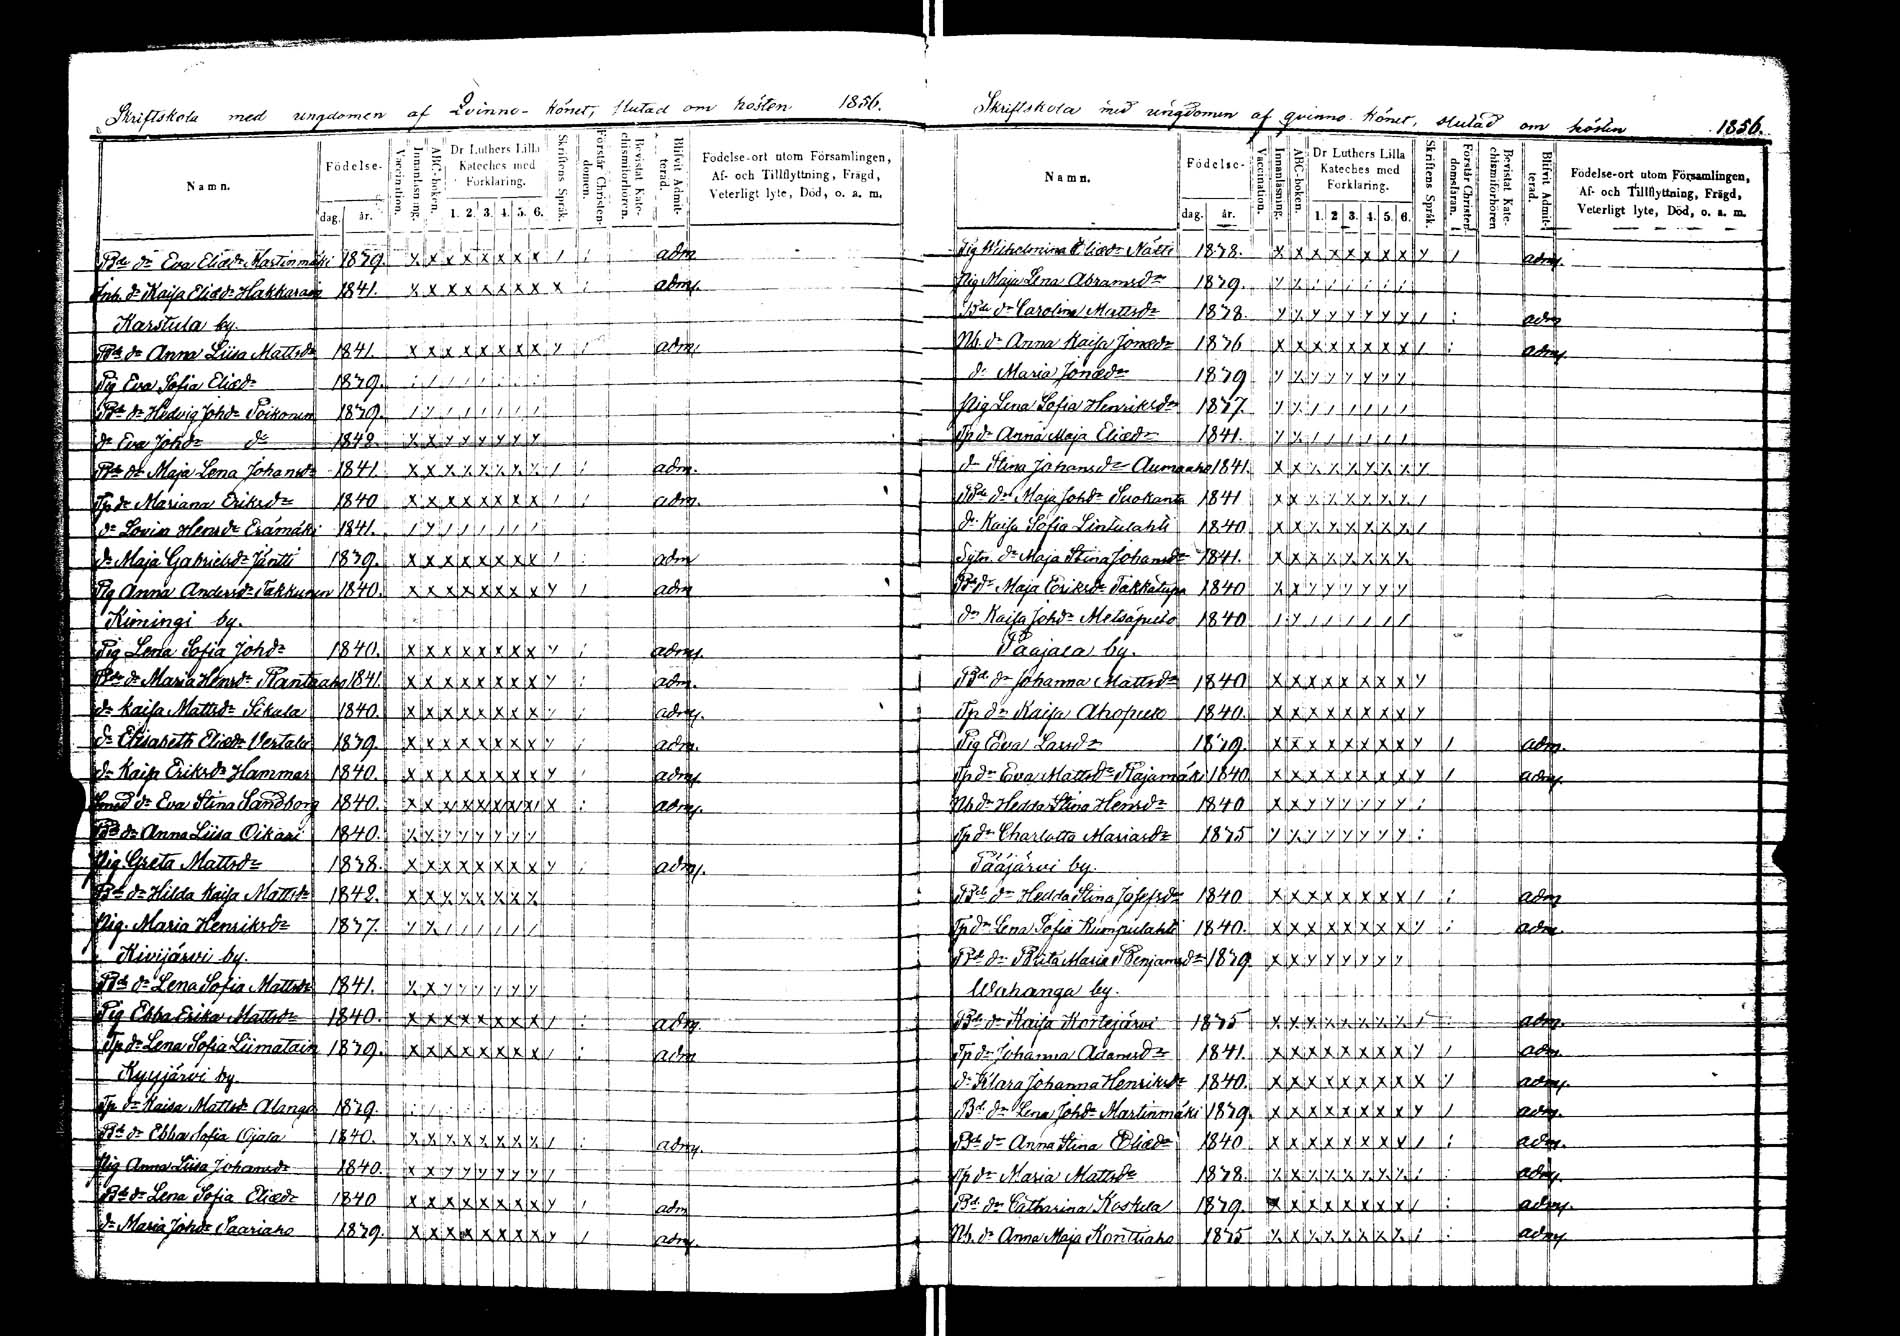 Skriftskola med ungdomen af Qvinno-könet, slutad om hösten 1856.
Namn. Födelse- dag. år. Vaccination. Innanläsning. ABC-boken. Dr Luthers Lilla Kateches med Forklaring. 1. 2. 3. 4. 5. 6. Skriftens Språk. Förstår Christendomen. Bevistat Katechismiförhören. Blifvit Admitterad. Fodelse-ort utom Församlingen, Af- och Tillflyttning, Frägd, Veterligt lyte, Död, o. a. m.
Bde dr Eva Eliædr Martinmäki 1839. x x x x x x x x / : adm
Inh. dr Kaisa Eliædr Hakkarain 1841. x x x x x x x x x : adm.
Karstula by.
Bde dr Anna Liisa Mattsdr 1841. x x x x x x x x y / adm.
Pig Eva Sofia Eliædr 1839.
Bde dr Hedvig Johdr Poikonen 1839. / y / / / / / /
dr Eva Johdr dr 1842. x x y y y y y y
Bde dr Maja Lena Johansdr 1841. x x x x x x x x / : adm.
Tp dr Mariana Eriksdr 1840 x x x x x x x x / : adm.
dr Lovisa Hensdr Erämäki 1841. / y / / / / / /
dr Maja Gabrielsdr Jäntti 1839. x x x x x x x x / : adm
Pig Anna Andersdr Takkunen 1840. x x x x x x x x y / adm
Kimingi by.
Pig Lena Sofia Johdr 1840. x x x x x x x x y : adm.
Bde dr Maria Hensdr Rantaaho 1841. x x x x x x x x y : adm.
dr Kaisa Mattsdr Sikala 1840. x x x x x x x x y : adm.
dr Elisabeth Eliædr Vertala 1839. x x x x x x x x y : adm.
dr Kaisa Eriksdr Hammar 1840. x x x x x x x x y / adm
Smed dr Eva Stina Sandborg 1840. x x x x x x x x x : adm.
Bde dr Anna Liisa Oikari 1840. x x y y y y y y
Pig Greta Mattsdr 1838. x x x x x x x x y : adm.
Bde dr Hilda Kaisa Mattsdr 1842. x x x x x x x x
Pig. Maria Henriksdr 1837. y y / / / / / /
Kivijärvi by.
Bde dr Lena Sofia Mattsdr 1841. x x y y y y y y
Pig Ebba Erika Mattsdr 1840. x x x x x x x x / : adm.
Tp dr Lena Sofia Liimatain 1839. x x x x x x x x / : adm
Kyyjärvi by.
Tp dr Kaisa Mattsdr Alanga 1839.
Bde dr Ebba Sofia Ojala 1840. x x x x x x x x / : adm.
Pig Anna Liisa Johansdr 1840. x x y y y y y y /
Bde dr Lena Sofia Eliædr 1840 x x x x x x x x y / adm
dr Maria Johdr Saariaho 1839. x x x x x x x x y / adm.
Skriftskola med ungdomen af qvinno-könet, slutad om hösten 1856.
Namn. Födelse- dag. år. Vaccination. Innanläsning. ABC-boken. Dr Luthers Lilla Kateches med Forklaring. 1. 2. 3. 4. 5. 6. Skriftens Språk. Förstår Christendomsläran. Bevistat Katechismiförhören Blifvit Admitterad. Fodelse-ort utom Församlingen, Af- och Tillflyttning, Frägd, Veterligt lyte, Död, o. a. m.
Pig Wilhelmina Eliædr Nätti 1838. x x x x x x x x y / adm.
Pig Maja Lena Abramsdr 1839. y y / / / / / /
Bde dr Carolina Mattsdr 1838. y y y y y y y y / : adm
Nb. dr Anna Kaisa Jonædr 1836 x x x x x x x x / : adm.
dr Maria Jonædr 1839 y y y y y y y y
Pig Lena Sofia Henriksdr 1837. y y / / / / / /
Tp dr Anna Maja Eliædr 1841. y y / / / / / /
dr Stina Johansdr Aumaaho 1841. x x x x x x x x y
Bde dr Maja Johdr Suokanta 1841 x x x x x x x x /
dr Kaisa Sofia Lintulahti 1840. x x x x x x x x /
Sytn. dr Maja Stina Johansdr 1841. x x x x x x x x
Bde dr Maja Eriksdr Takkatupa 1840 x x y y y y y y
dr Kaisa Johdr Metsäpelto 1840 / y / / / / / /
Pääjala by.
Bde dr Johanna Mattsdr 1840 x x x x x x x x y
Tp dr Kaisa Ahopelto 1840. x x x x x x x x y
Pig Eva Larsdr 1839. x x x x x x x x y / adm.
Tp dr Eva Mattsdr Rajamäki 1840. x x x x x x x x y / adm.
Nb dr Hedda Stina Hensdr 1840 x x y y y y y y :
Tp dr Charlotta Mariasdr 1835 y y y y y y y y :
Pääjärvi by.
Bde dr Hedda Stina Josefsdr 1840 x x x x x x x x / : adm
Tp dr Lena Sofia Kumpulahti 1840. x x x x x x x x y : adm.
Bde dr Brita Maria Benjamsdr 1839. x x y y y y y y
Wahanga by.
Bde dr Kaisa Kortejärvi 1835 x x x x x x x x / : adm.
Tp dr Johanna Adamsdr 1841. x x x x x x x x y / adm.
dr Klara Johanna Henriksdr 1840. x x x x x x x x x y adm.
Bde dr Lena Johdr Martinmäki 1839. x x x x x x x x y / adm.
Bde dr Anna Stina Eliædr 1840 x x x x x x x x / : adm.
Tp dr Maria Mattsdr 1838. x x x x x x x x : : adm.
Bde dr Catharina Koskela 1839. x x x x x x x x / : adm.
Nb. dr Anna Maja Konttiaho 1835 x x x x x x x x : : adm.